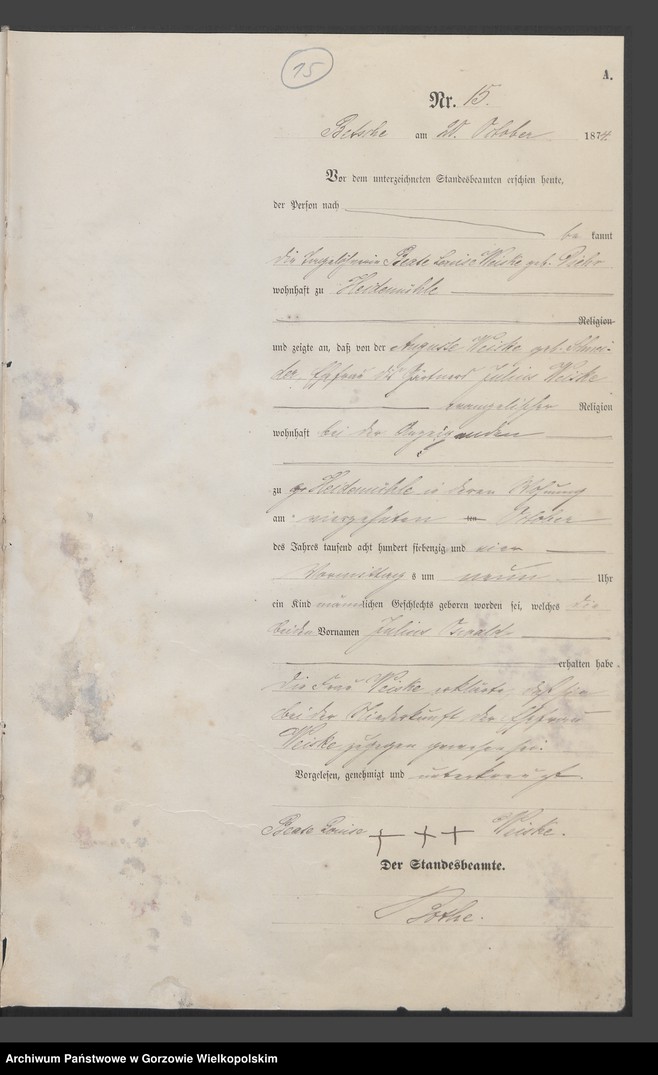 15
A.
Nr. 15.
Betsche am 20. October 1874.
Vor dem unterzeichneten Standesbeamten erschien heute,
der Person nach
be kannt
die Beate Louise Weiske geb.
wohnhaft zu Heidemühle
Religion
und zeigte an, daß von der Auguste Weiske geb. Schnei-
der, Ehefrau des Gärtners Julius Weiske
evangelischer Religion
wohnhaft bei der Anzeigenden
zu Heidemühle in deren Wohnung
am vierzehnten ten October
des Jahres tausend acht hundert siebenzig und vier
Vormittags um neun Uhr
ein Kind männlichen Geschlechts geboren worden sei, welches die
beiden Vornamen Julius Oswald
erhalten habe.
Die Frau Weiske erklärte, daß sie
bei der Niederkunft der Ehefrau
Weiske zugegen gewesen sei.
Vorgelesen, genehmigt und unterkreuzt
Beate Louise +++ Weiske.
Der Standesbeamte.
Bothe.
Archiwum Państwowe w Gorzowie Wielkopolskim